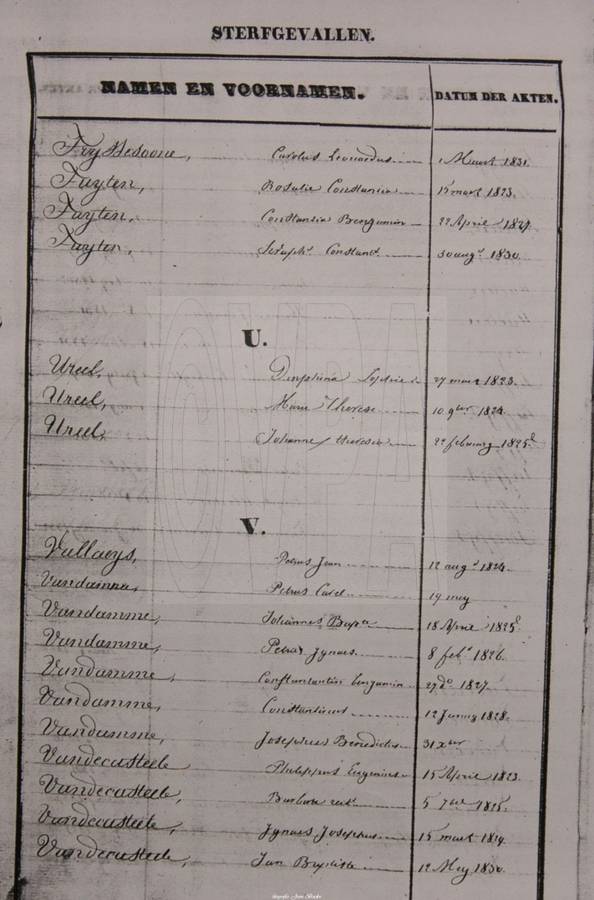 STERFGEVALLEN.
NAMEN EN VOORNAMEN. DATUM DER AKTEN.
Carolus Leonardus 1 Maart 1831.
Tuyten, Rosalie Constantia 15 maart 1823.
Tuyten, Constantia Benjamin 22 April 1827.
Tuyten, Seraph. Constant. 30 augt 1830.
U.
Ureel, 27 maart 1823.
Ureel, Marie Therese 10 9ber 1824.
Ureel, Johanne Theresia 22 february 1825
V.
Vallaeys, Petrus Jean 12 augt 1824.
Vandamme, Petrus Carel 14 mey
Vandamme, Johannes Bapte 18 April 1825
Vandamme, Petrus Ignaes 8 feb. 1826.
Vandamme, Constantantin Benjamin 27 do 1827.
Vandamme, Constantinus 12 1828.
Vandamme, Josephus Benedictus 31 xber
Vandecasteele Philippus Eugenius 15 April 1823.
Vandecasteele, Barbara 5 7ber 1825.
Vandecasteele, Ignaes Josephus 15 maart 1829.
Vandecasteele, Jan Baptiste 12 Mey 1830.
OVPA